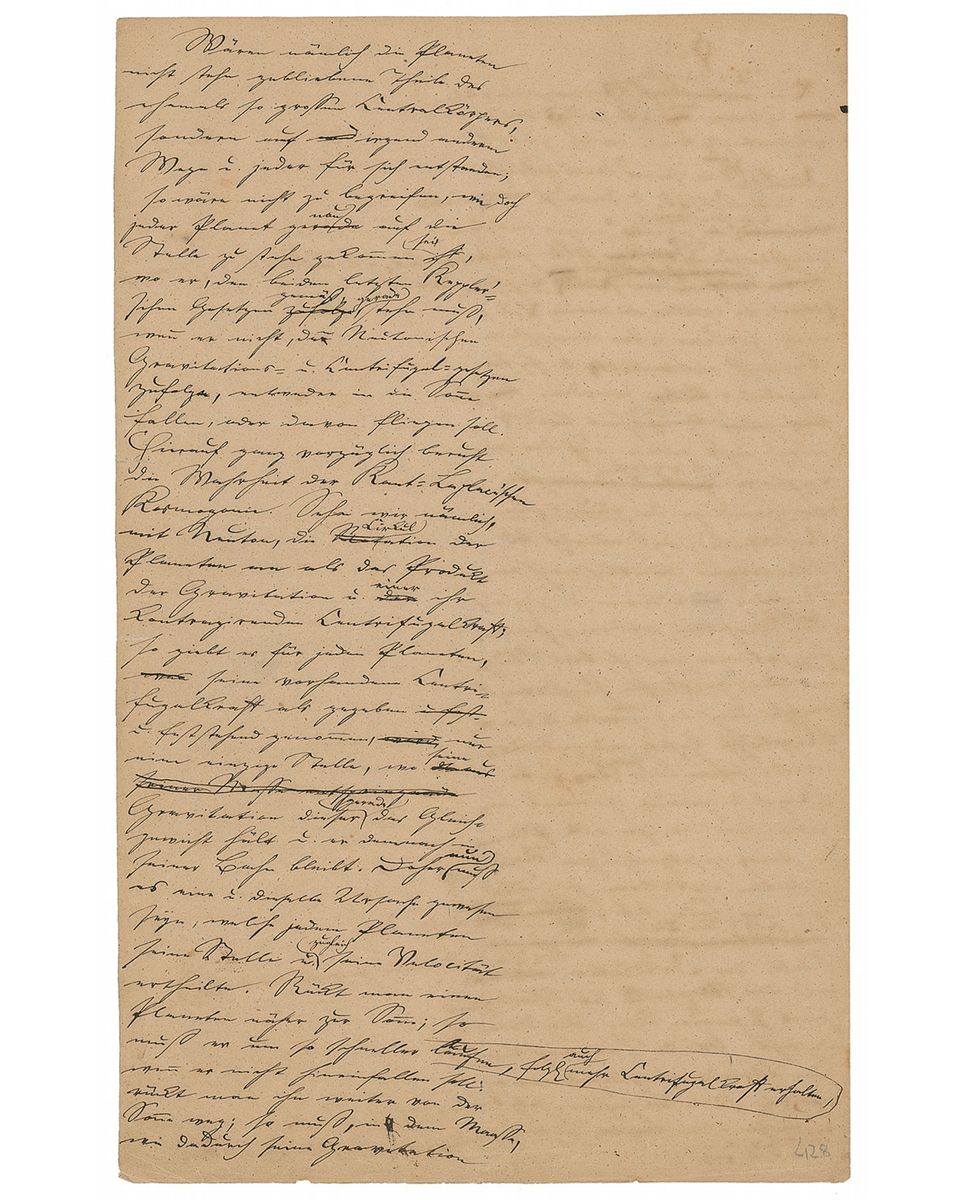 Wären nämlich die Planeten
nicht stehn gebliebene Theile des
ehemals so großen Centralkörpers,
sondern auf irgend anderm
Wege u. jeder für sich entstanden;
so wäre nicht zu begreifen, wie doch
jeder Planet gerade auf die
Stelle zu stehn gekommen sei,
wo er, den beiden letzten Keppler'=
schen Gesetzen gemäß, gerade stehn muß,
wenn er nicht, den Neutonischen
Gravitations= u. Centrifugal=gesetzen
zufolge, entweder in die Sonne
fallen, oder davon fliegen soll.
Hierauf ganz vorzüglich beruht
die Wahrheit der Kant=Laplace'schen
Kosmogonie. Sehn wir nämlich,
mit Neuton, die Cirkulation der
Planeten an als das Produkt
der Gravitation u. einer ihr
kontragirenden Centrifugalkraft;
so giebt es für jeden Planeten,
seine vorhandene Centri=
fugalkraft als gegeben
u. feststehend genommen, nur
eine einzige Stelle, wo seine
Gravitation dieser gerade das Gleich=
gewicht hält u. er demnach in
seiner Bahn bleibt. Daher nun muß
es eine u. dieselbe Ursache gewesen
seyn, welche jedem Planeten
seine Stelle u. zugleich seine Velocität
ertheilte. Rükt man einen
Planeten näher zur Sonne; so
muß er um so schneller laufen, folgl. auch mehr Centrifugalkraft erhalten,
wenn er nicht hineinfallen soll:
rükt man ihn weiter von der
Sonne weg; so muß, in dem Maaße,
wie dadurch seine Gravitation
428